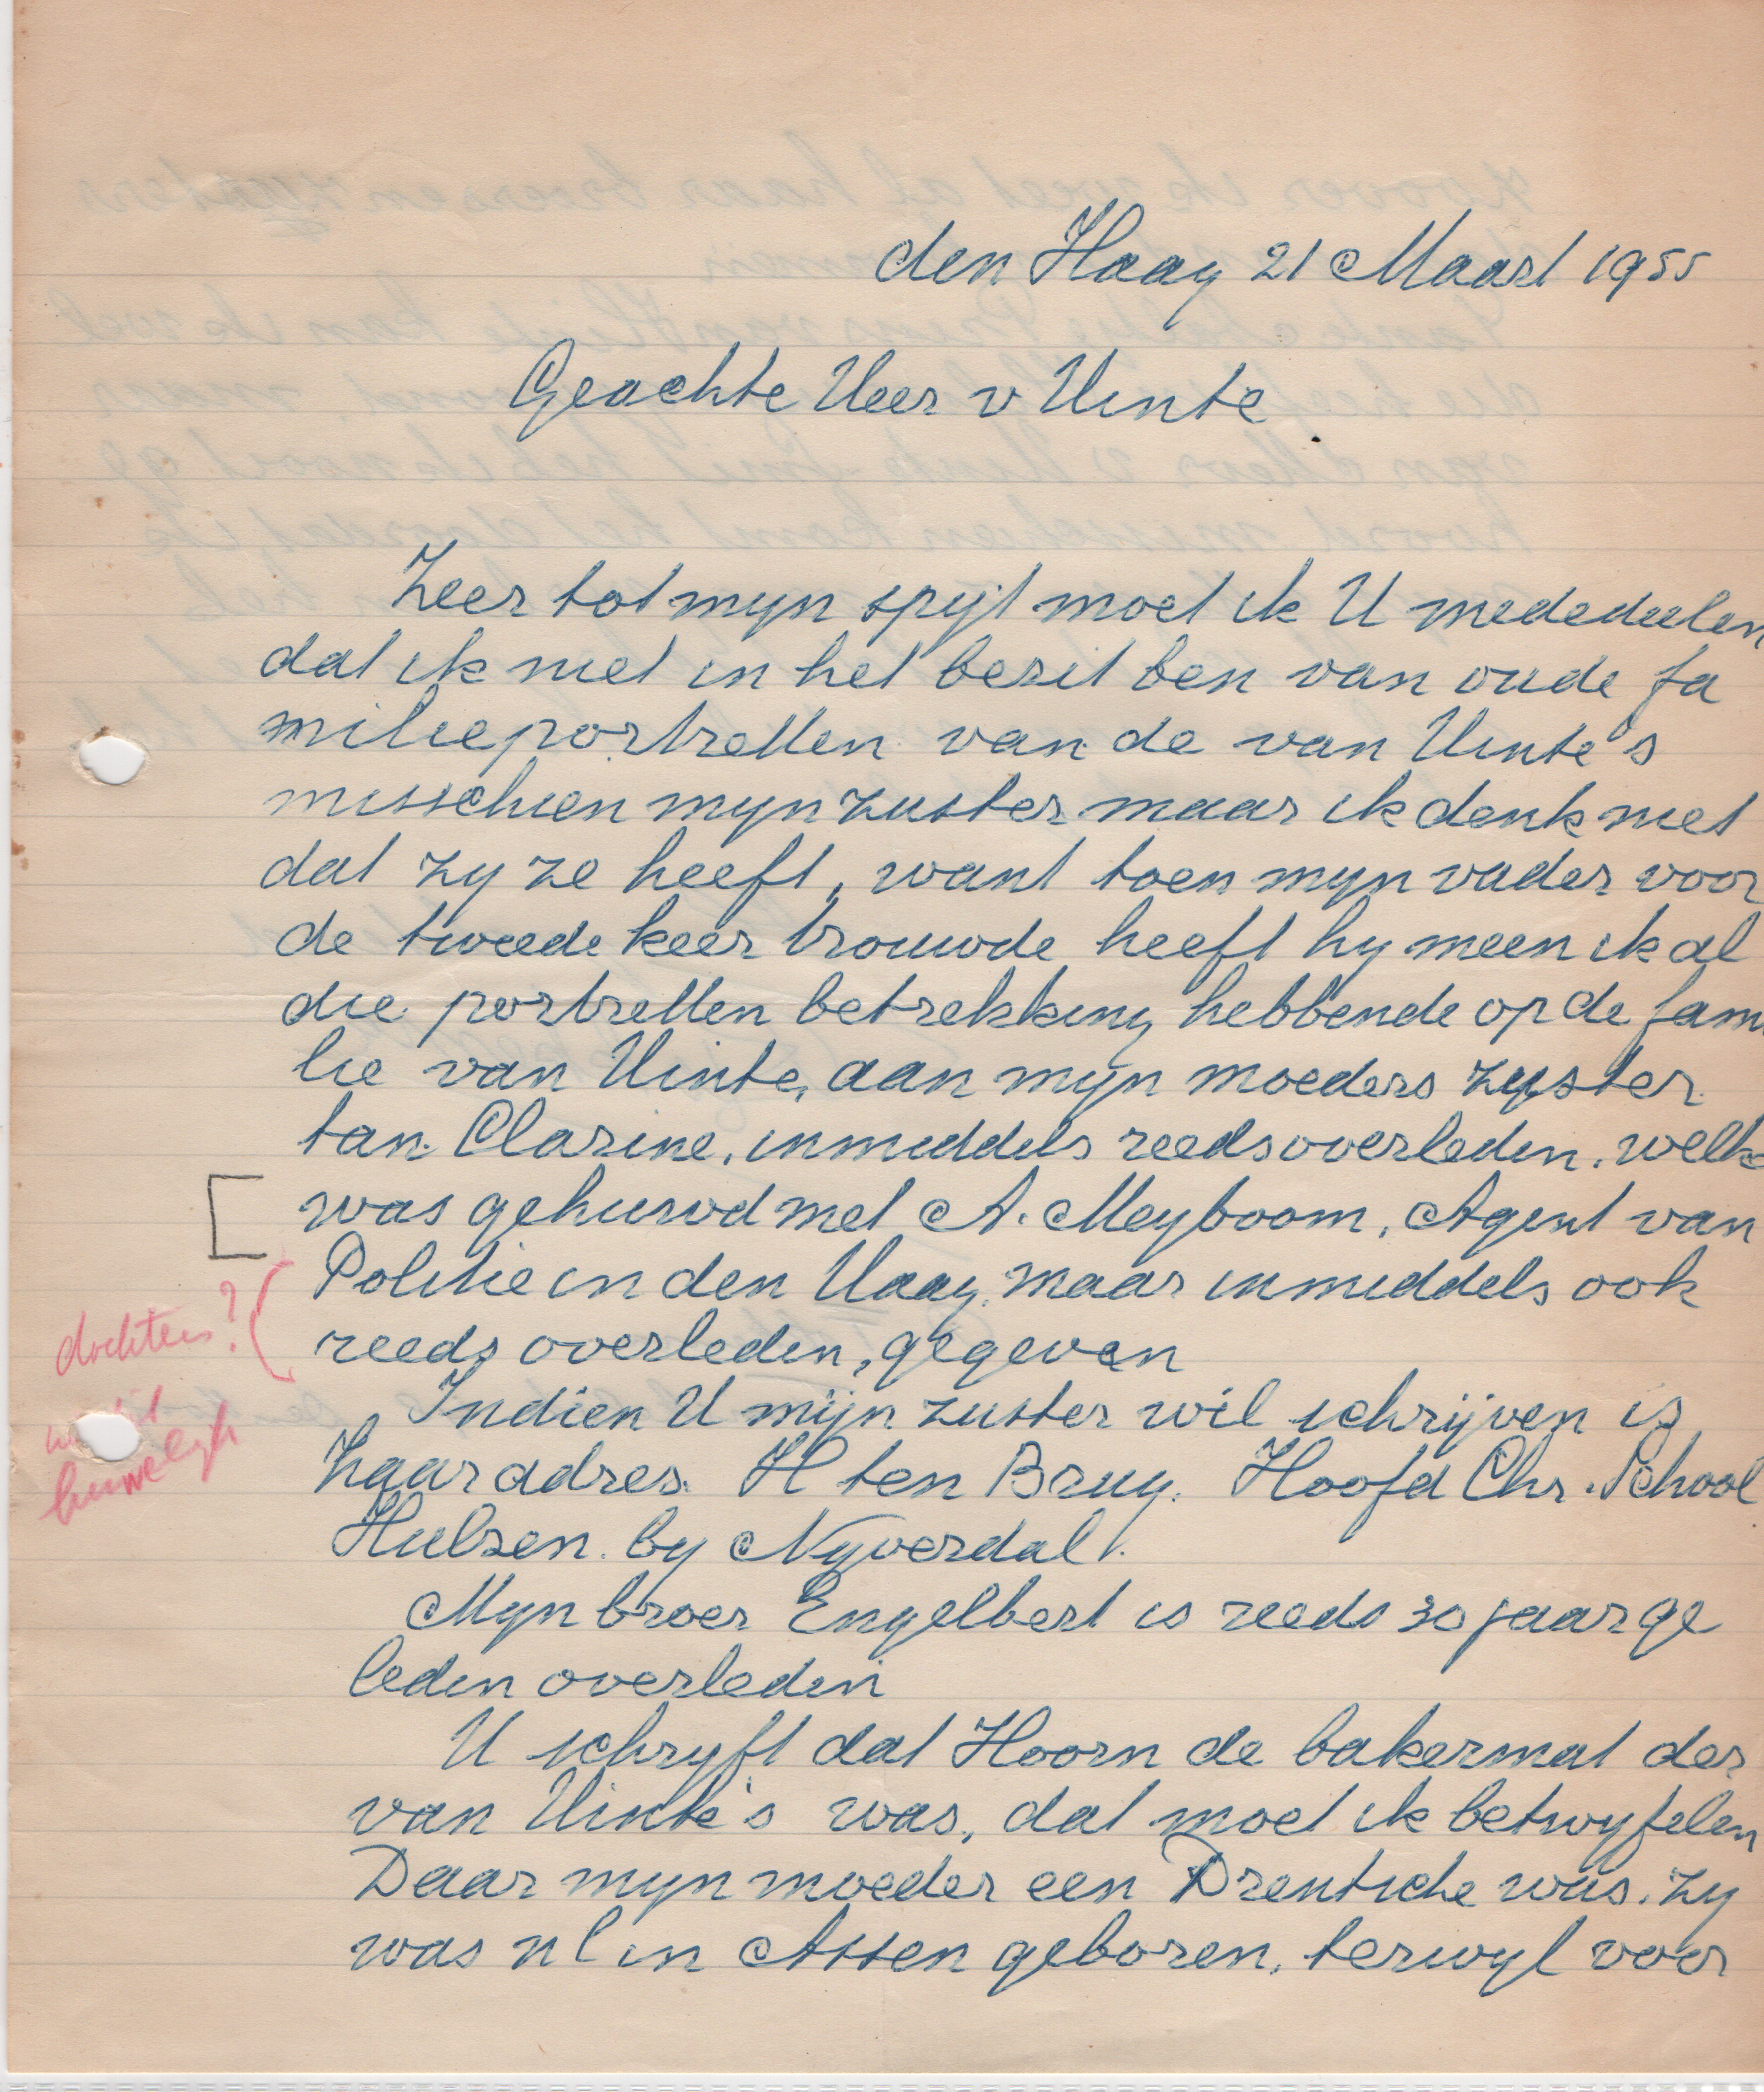 den Haag 21 Maart 1955
Geachte Heer v Hinte
Zeer tot mijn spijt moet ik U mededeelen
dat ik niet in het bezit ben van oude fa
milieportretten van de van Hinte's
misschien mijn zuster maar ik denk niet
dat zy ze heeft, want toen mijn vader voor
de tweede keer trouwde heeft hy meen ik al
die portretten betrekking hebbende op de fami
lie van Hinte, aan mijn moeders zuster
tan. Clasine, inmiddels reeds overleden, welke
was gehuwd met A. Meyboom, Agent van
Politie in den Haag, maar inmiddels ook
reeds overleden, gegeven
dochters?
huwelijk
Indien U mijn zuster wil schrijven is
haar adres. H ten Brug. Hoofd Chr. School
Hulsen. by Nyverdal.
Myn broer Engelbert is reeds 30 jaar ge
leden overleden
U schryft dat Hoorn de bakermat der
van Hinte's was, dat moet ik betwyfelen
Daar myn moeder een Drentsche was. zy
was nl in Assen geboren, terwyl voor